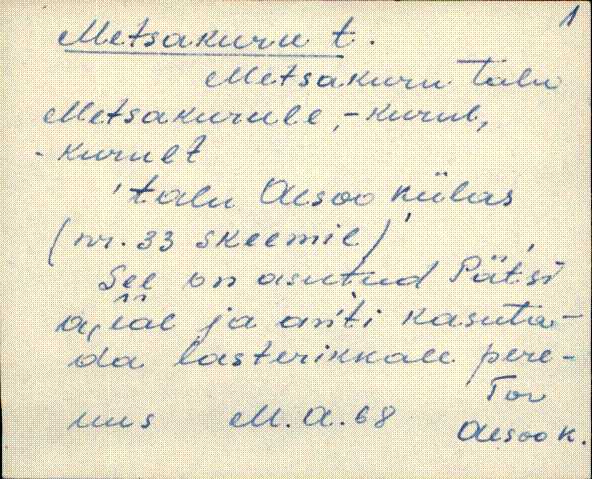 1
Metsakuru t.
Metsakuru talu
Metsakurule, -kurul,
-kurult
'talu Aesoo külas'
(nr. 33 skeemil)
See on asutud Pätsi
ajal ja anti kasuta-
da lasterikkale pere-
Tor
uus M.A.68 Aesoo k.